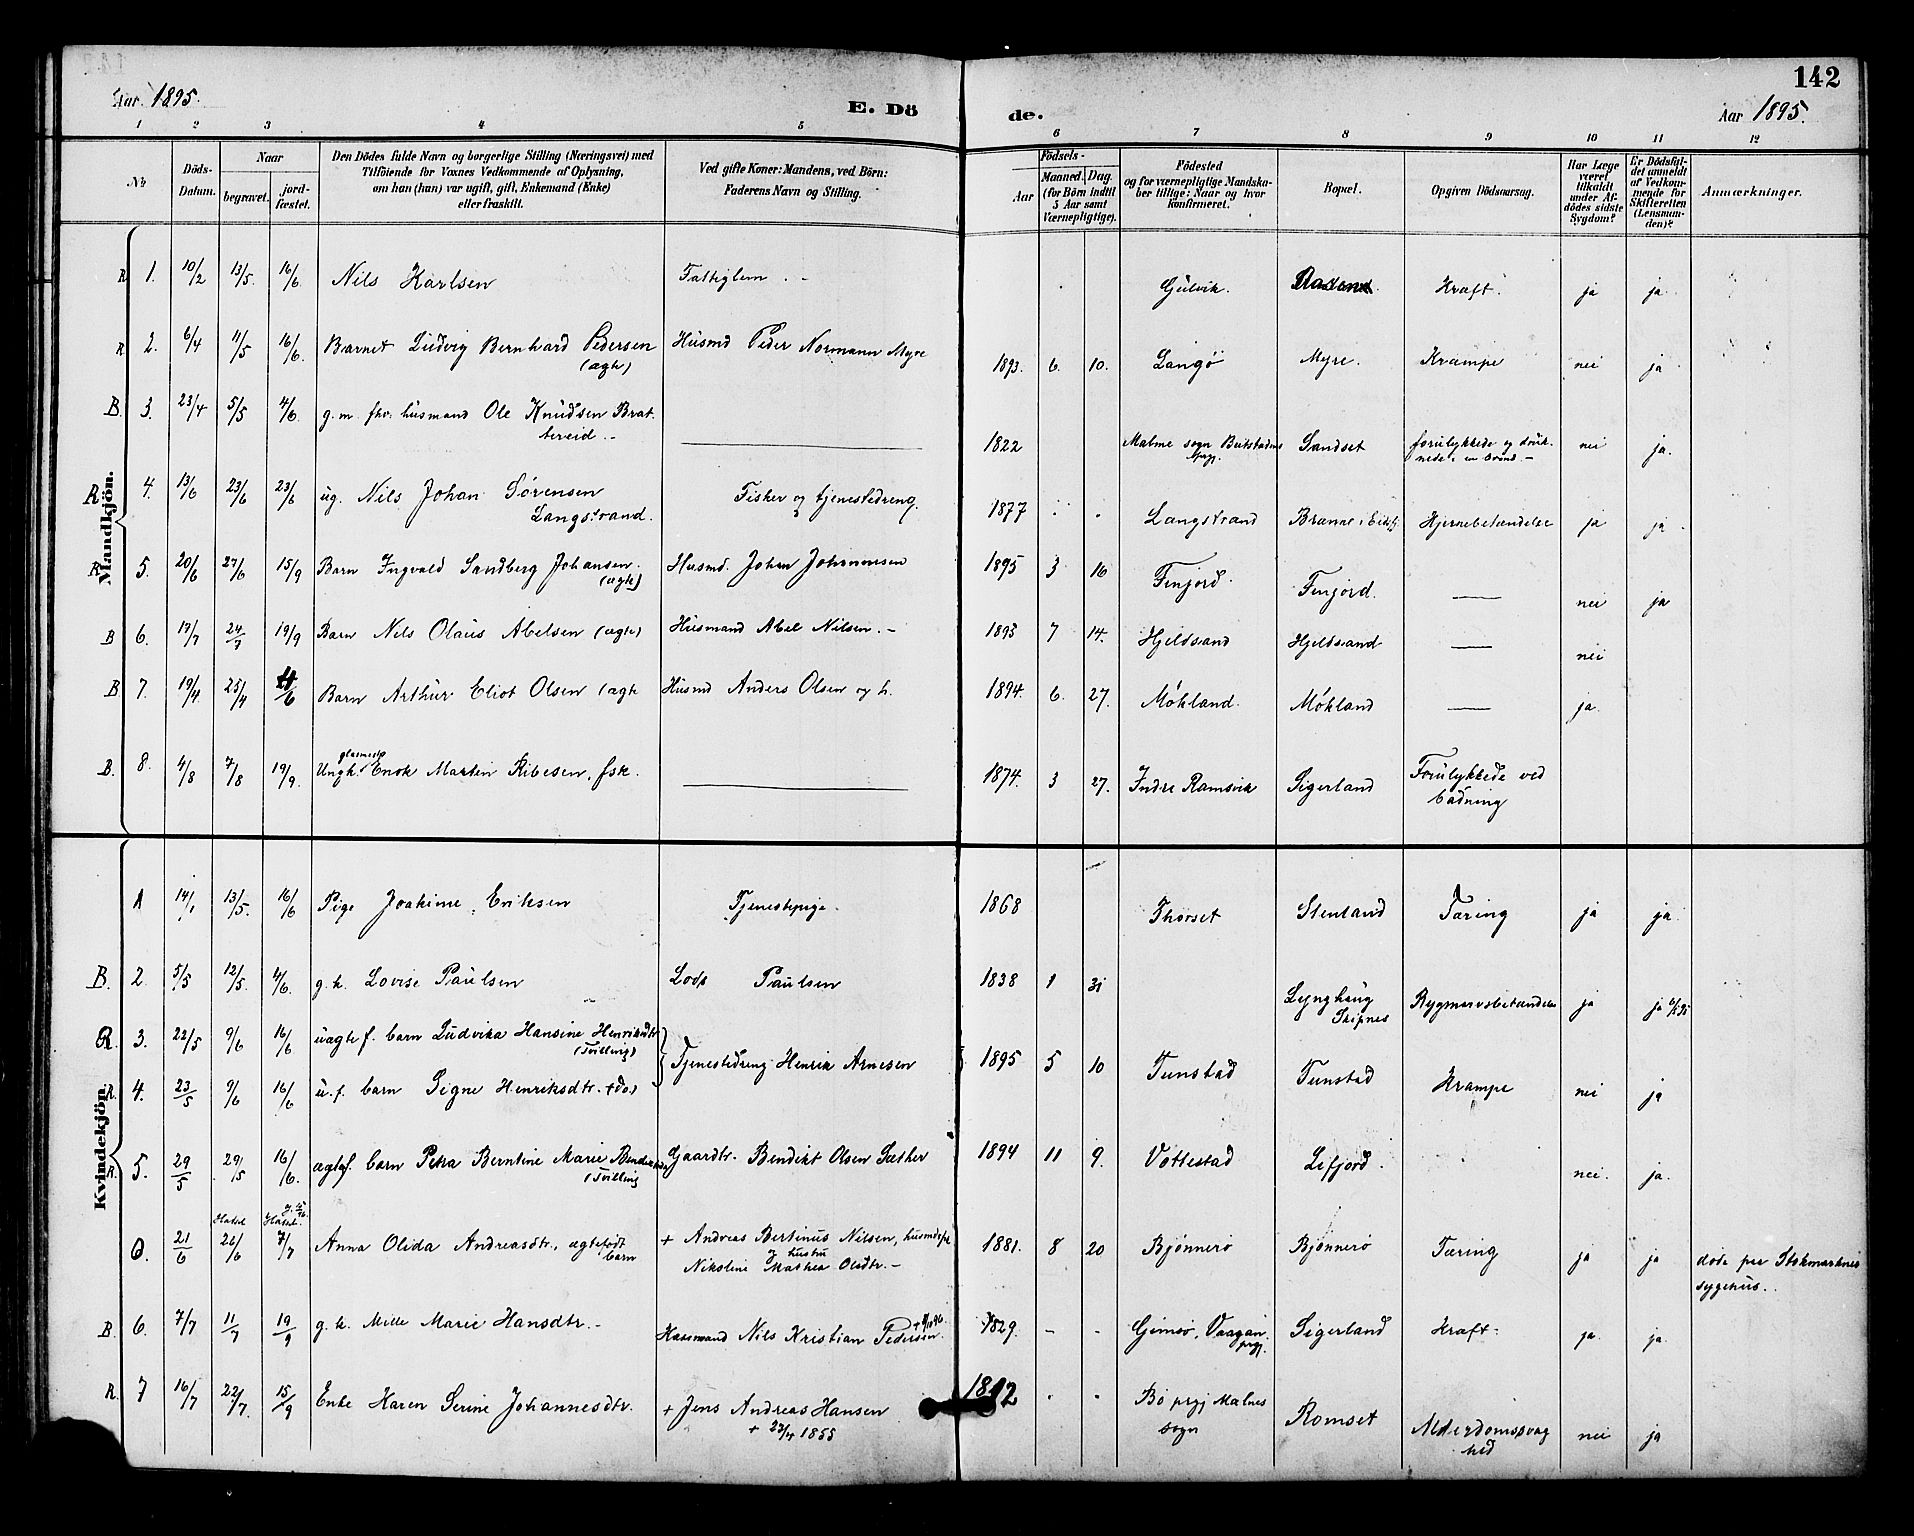 142
Aar 1895.
E. Döde.
Aar 1895.
1 2 3 4 5 6 7 8 9 10 11 12
No
Döds-Datum.
Naar
begravet.
jord-fæstet.
Den Dödes fulde Navn og borgerlige Stilling (Næringsvei) med
Tilföiende for Voxnes Vedkommende af Oplysning,
om han (hun) var ugift, gift, Enkemand (Enke)
eller fraskilt.
Ved gifte Koner: Mandens, ved Börn:
Faderens Navn og Stilling.
Födsels-
Aar
Maaned. Dag.
(for Börn indtil
5 Aar samt
Værnepligtige).
Födested
og for værnepligtige Mandska-
ber tillige: Naar og hvor
konfirmeret.
Bopæl.
Opgiven Dödsaarsag.
Har Læge
været
tilkaldt
under Af-
dödes sidste
Sygdom?
Er Dödsfal-
det anmeldt
af Vedkom-
mende for
Skifteretten
(Lensman-
den)?
Anmærkninger.
Mandkjön.
R 1. 10/2 13/5. 16/6. Nils Karlsen Fattiglem Gulvik. Kraft. ja ja.
R. 2. 6/4 11/5 16/6. Barnet Ludvig Bernhard Pedersen (ægte) Husmd Peder Normann Myre 1893. 6. 10. Langö Myre. Krampe nei ja
B. 3. 23/4 5/5 4/6. g. m. fhv. husmand Ole Knudsen Bratbereid. 1822 Malme sogn Beitstadens prgj. Sandset forulykkede og druknede i en brønd. nei ja.
R 4. 13/6 23/6 23/6 ug. Nils Johan Sörensen Langstrand. Fisker og tjenestedreng. 1877 Langstrand Brænne i Eidsfj. Hjernebetændelse ja ja
R. 5. 20/6 27/6 15/9 Barn Ingvald Sandberg Johansen. (ægte) Husmd. Johan Johannesen 1895 3 16 Finjord. Finjord. nei ja
B 6. 17/7 24/7 19/9 Barn Nils Olaus Abelsen (ægte) Husmand Abel Nilsen. 1893 7 14. Hjeldsand Hjeldsand nei
B 7. 19/4. 25/4 4/6 Barn Arthur Eliot Olsen (ægte Husmd Anders Olsen og h. 1894. 6. 27. Møkland. Møkland ja.
B. 8. 4/8 7/8 19/9. Ungk. Enok Martin Ribesen, fsk. 1874. 3 27. Indre Ramsvik Sigerland Forulykkede ved badning
Kvindekjön.
1 14/1 13/5. 16/6 Pige Joakime Eriksen Tjenestepige. 1868 Thorset Stenland Tæring ja ja
B. 2. 5/5 12/5. 4/6. g. k. Lovise Paulsen Lods Paulsen 1838 1 31 Lynghaug Skipnes Rygmarvsbetændelse ja ja
R. 3. 22/5 9/6 16/6 uægte f. barn Ludvika Hansine Henriksdtr (Tvilling) Tjenestedreng Henrik Arnesen 1895 5 10 Tunstad Tunstad Krampe nei ja
R. 4. 23/5 9/6 16/6 u. f. barn Signe Henriksdtr. (do)
R. 5. 29/5 29/5 16/6. ægtef. barn Petra Berntine Marie (Tvilling Gaardbr. Bendikt Olsen Sæther 1894 11 9. Vottestad Lifjord. nei. ja.
21/6 Hadsel 26/6 Hadsel. 7/7 Anna Olida Andreasdtr., ægtefødt barn + Andreas Bertinus Nilsen, og hustru Nikoline Mathea Olsdtr. 1881. 8 20 Bjönnerö Bjönnerö Tæring ja ja døde paa Stokmarknes sygehus.
B. 6. 7/7 11/7 19/9 g. k. Mille Marie Hansdtr. Husmand Nils Kristian Pedersen. 1829. Gimsö, Vaagan prgj. Sigerland Kraft ja ja.
R. 7 16/7 22/7. 15/9 Enke Karen Serine Johannesdtr. + Jens Andreas Hansen + 23/4 1855 1812 Bö prgj Malnes sogn Romset Alderdomssvaghed nei ja